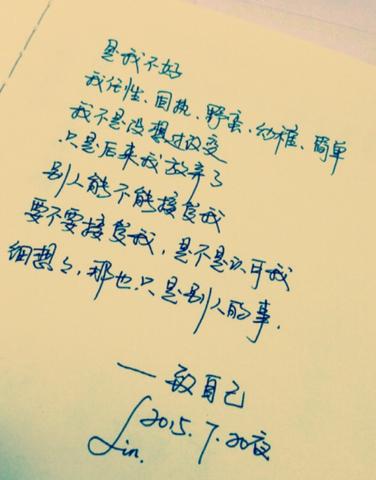 是我不好
我任性、固执、野蛮、幼稚、简单
我不是没想过改变
只是后来我放弃了
别人能不能接受我
要不要接受我，是不是认可我
细想之，那也只是别人的事.
—致自己
Lin. 2015.7.20夜